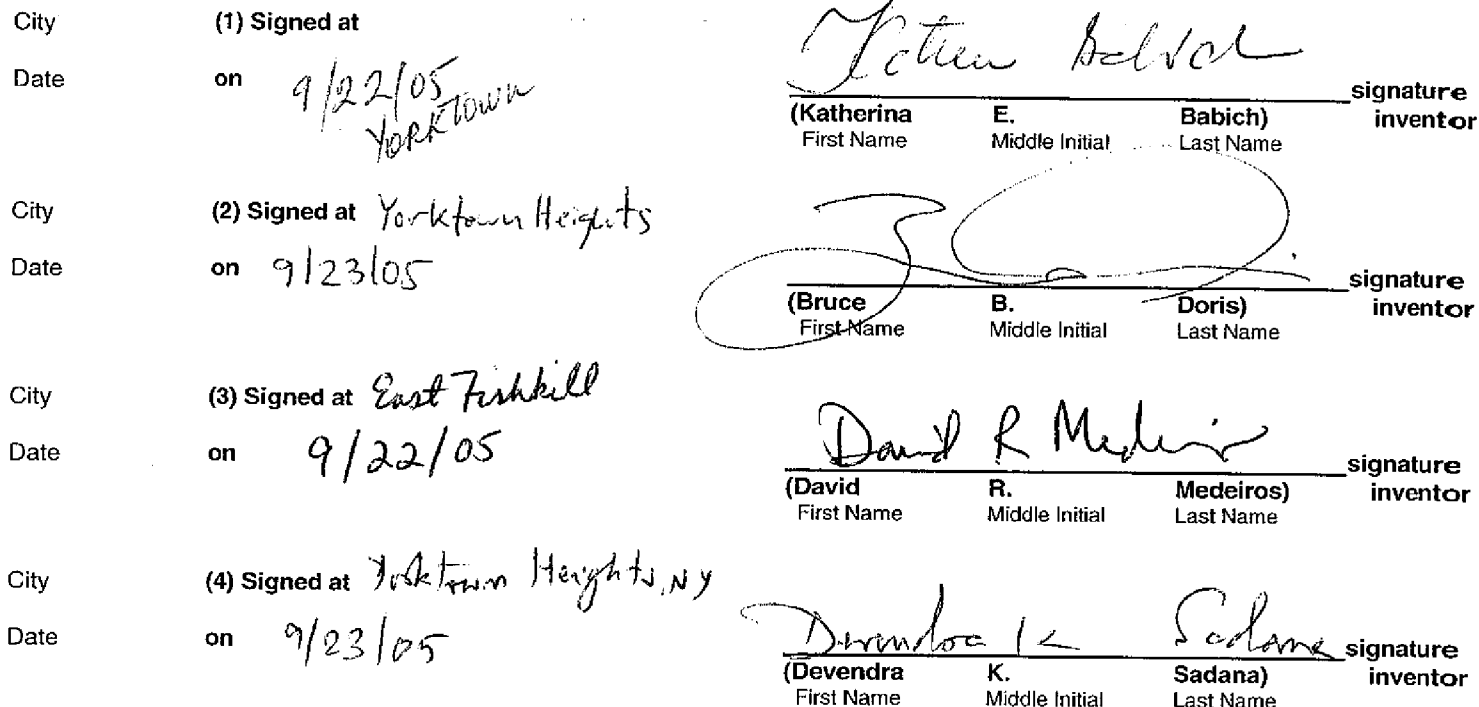 City (1) Signed at
Date on 9/22/05
Yorktown
signature
(Katherina E. Babich) inventor
First Name Middle Initial Last Name
City (2) Signed at Yorktown Heights
Date on 9/23/05
signature
(Bruce B. Doris) inventor
First Name Middle Initial Last Name
City (3) Signed at East Fishkill
Date on 9/22/05
David R Medeiros signature
(David R. Medeiros) inventor
First Name Middle Initial Last Name
City (4) Signed at Yorktown Heights, NY
Date on 9/23/05
Devendra K Sadana signature
(Devendra K. Sadana) inventor
First Name Middle Initial Last Name